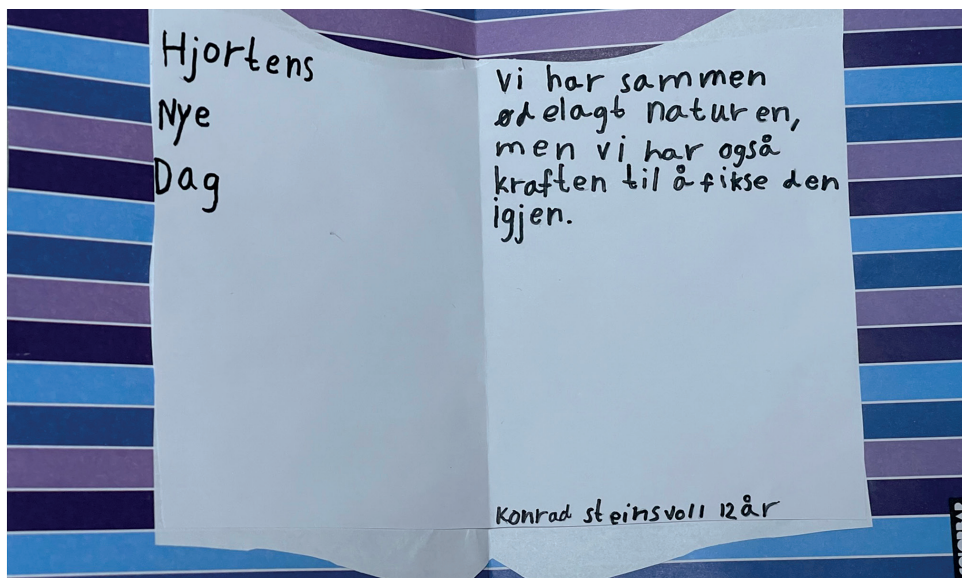 Hjortens
Nye
Dag
Vi har sammen
ødelagt naturen,
men vi har også
kraften til å fikse den
igjen.
Konrad steinsvoll 12 år